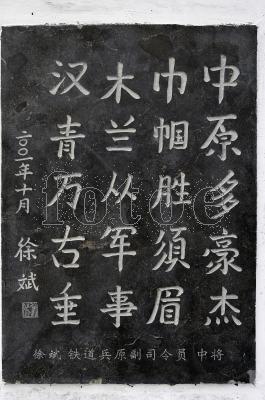 中原多豪杰
巾帼胜须眉
木兰从军事
汉青万古垂
二〇〇一年十月
徐斌
徐斌 铁道兵原副司令员 中将
fotoe